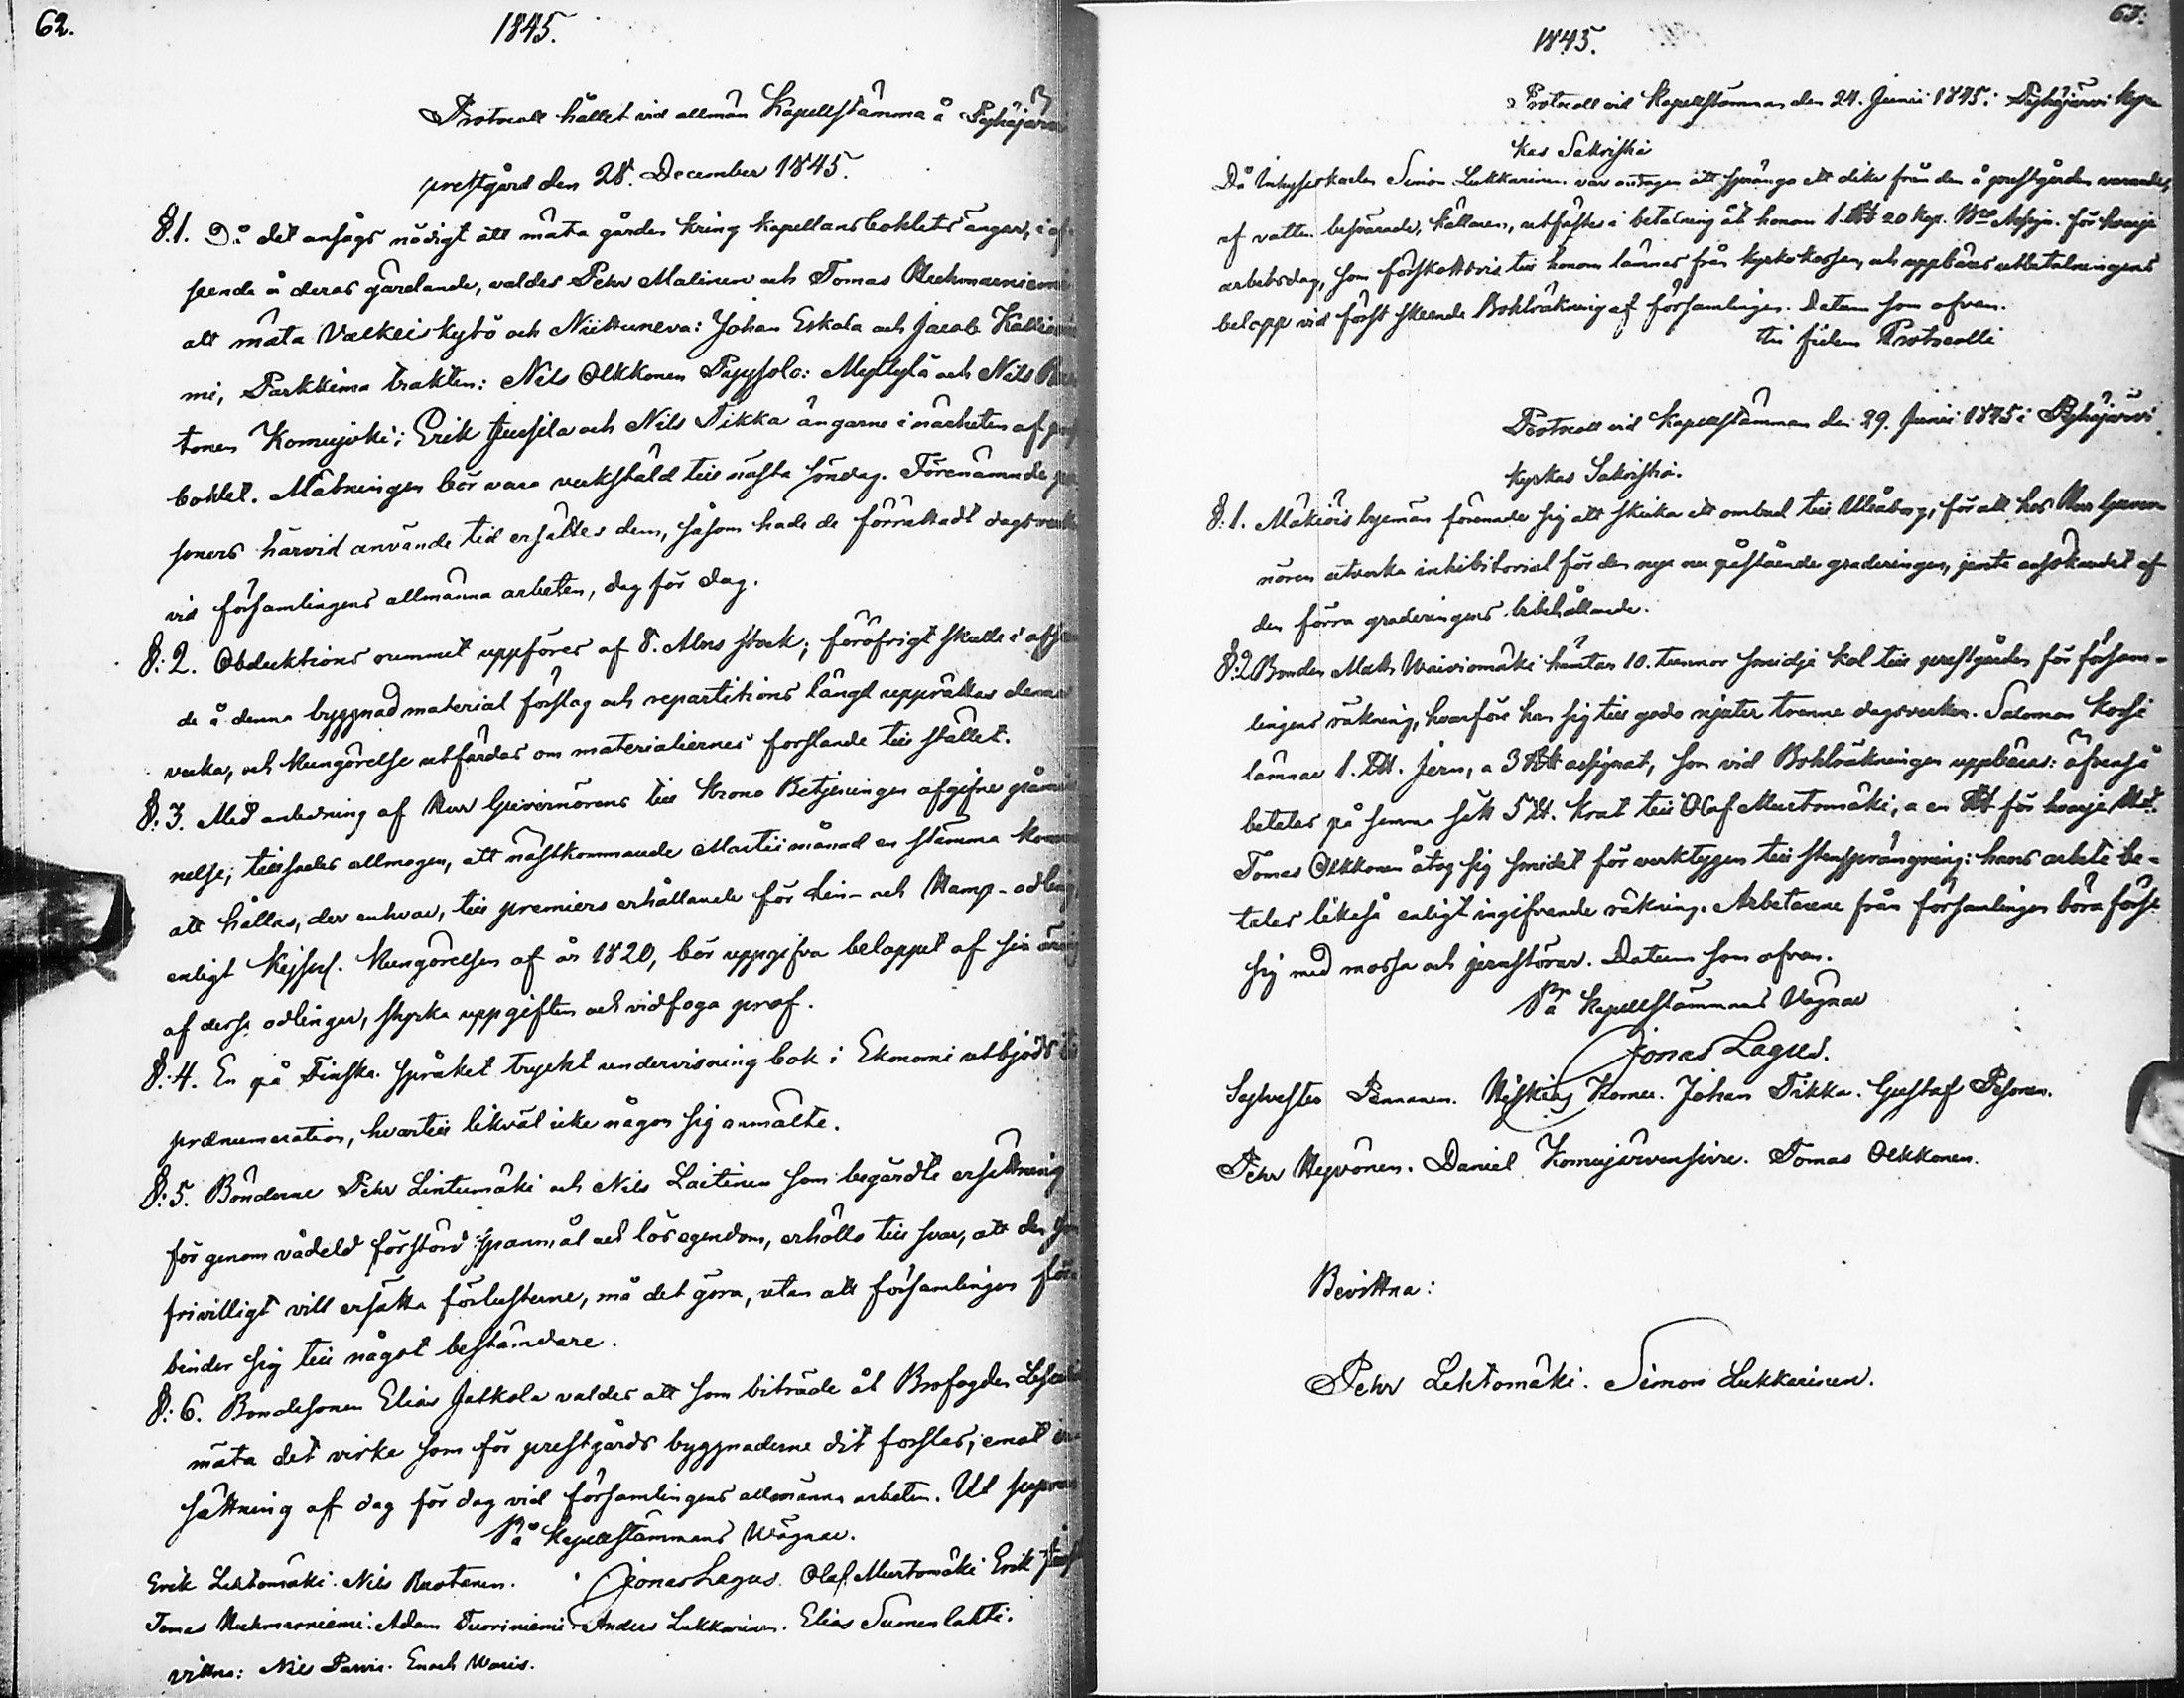 62.
1845.
Protocoll hållet vid allmän Kapellstämma å Pyhäjärvi
prestgård den 28. December 1845.
§.1. Då det ansågs nödigt att mäta gården kring kapellansbohlets ängar, i af-
seende å deras gärdande, valdes Pehr Malinen och Tomas Ruhmaniemi
att mäta Valkeiskytö och Niittuneva: Johan Eskola och Jacob Kallio
mi, Parkkima trakten: Nils Olkkonen Pyysalo: Myllylä och Nils
tonen Komujoki; Erik Jussila och Nils Tikka ängarne i närheten af
bohlet. Mätningen bör vara verkstäld till nästa söndag. Förenämnde
soners härvid använde tid ersättes dem, såsom hade de förrättadt dagsverken
vid församlingens allmänna arbeten, dag för dag.
§:2. Obduktions rummet uppföres af 8. Alns stock; föröfrigt skulle i afseen
de å denna byggnad material förslag och repartitions längd upprättas denna
vecka, och kungörelse utfärdas om materialiernes forslande till stället.
§:3. Med anledning af Herr Guvernörens till Krono Betjeningen afgifne påmin
nelse, tillsades allmogen, att nästkommande Martii månad en stämma kommer
att hållas, der enhvar, till premiers erhållande för Lin- och Hamp-odling,
enligt Kejserl. Kungörelsen af år 1820, bör uppgifva beloppet af sin
af dessa odlingar, styrka uppgiften och vidfoga prof.
§:4. En på Finska språket tryckt undervisning bok i Ekonomi utbjöds till
prænumeration, hvartill likväl icke någon sig anmälte.
§:5. Bönderne Pehr Lintumäki och Nils Laitinen som begärdte ersättning
för genom vådeld förstörd spannmål och lös egendom, erhöllo till svar, att den som
frivilligt vill ersätta förlusterne, må det göra, utan att församlingen för-
binder sig till något bestämdare.
§:6. Bondesonen Elias Jatkola valdes att som biträde åt Brofogden
mäta det virke som för prestgårds byggnaderne dit forslas, emot er-
sättning af dag för dag vid församlingens allmänna arbeten. Ut supra
På Kapellstämmans Wägnar.
Erik Lehtomäki. Nils Ruotanen. Jonas Lagus. Olof Murtomäki Erik
Tomas Ruhmaniemi. Adam Tuoriniemi Anders Lukkarinen. Elias Suonenlahti.
vittna: Nils Parvi. Enoch Waris.
63.
1845.
Protocoll vid Kapellstämman den 24. Junii 1845 i Pyhäjärvi kyr-
kas Sakristia
Då Inhyseskarlen Simon Lukkarinen var antagen att spränga ett dike från den å prestgården varande,
af vatten besvärade, källaren, utfästes i betalning åt honom 1. 20 kop. för hvarje
arbetsdag, som förskottsvis till honom lämnas från kyrkokassan, och uppbäres utbetalningens
belopp vid först skeende Bohlräkning af församlingen. Datum som ofvan.
in fidem Protocolli
Protocoll vid Kapellstämman den 29. Junii 1845 i Pyhäjärvi
Kyrkas Sakristia.
§:1. Mäkiöis byemän förenade sig att skicka ett ombud till Uleåborg, för att hos Herr Guver-
nören utverka inhibitorial för den nya nu påstående graderingen, jemte ansökandet af
den förra graderingens bibehållande.
§:2. Bonden Math Waiviomäki hämtar 10. tunnor smidje kol till prestgården för försam-
lingens räkning, hvarföre han sig till godo njuter tvenne dagsverken. Salomon
lämnar 1. Jern, a 3 assignat, som vid Bohlräkningen uppbäres: äfvenså
betales på samma sätt 5 krut till Olof Murtomäki, a en för hvarje
Tomas Olkkonen åtog sig smidet för verktygen till stensprängning: hans arbete be-
tales likaså enligt ingifvende räkning. Arbetarene från församlingen böra förse
sig med mossa och jernstörar. Datum som ofvan.
På Kapellstämmans Vägnar
Jonas Lagus.
Sylvester Pennanen. Heskias Komu. Johan Tikka. Gustaf Pesonen.
Pehr Hyvönen. Daniel Komujärvensivu. Tomas Olkkonen.
Bevittna:
Pehr Lehtomäki. Simon Lukkarinen.